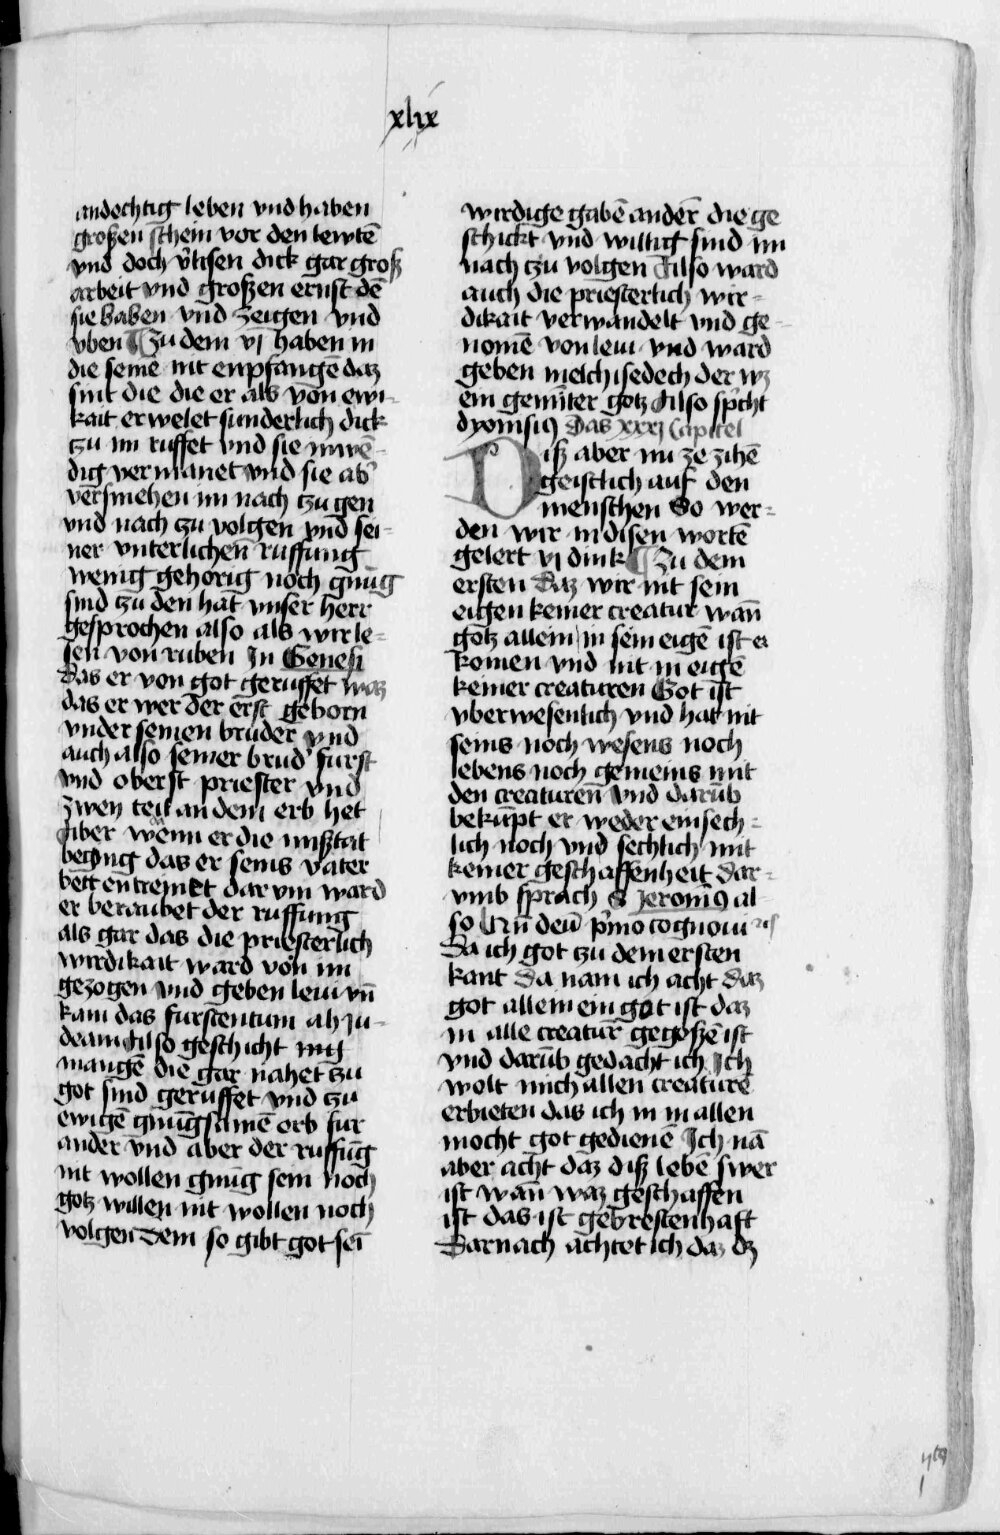 xlix
andechtig leben vnd haben
großen schein vor den lewtē
vnd doch v̓lisen dick gar groß
arbeit vnd großen ernst dē
sie haben vnd zeigen vnd
vben ¶ Zu dem vj haben in
die seine nit enpfangē daz
sint die die er als von ewi-
kait erwelet sunderlich dick
tzu im ruffet vnd sie inwē-
dig vermanet vnd sie ab̓
versmehen im nach tzu gen
vnd nach tzu volgen vnd sei-
ner vnterlichen ruffung
wenig gehorig noch gnūg
sind tzu den hat vnser herr
gesprochen also als wir le-
sen von ruben In Genesi
das er von got geruffet waz
das er wer der erst geborn
vnder seinen bruder vnd
auch also seiner brud̓ furst
vnd oberst priester vnd
zwen teil an dem erb het
Aber wenn er die mißtat
beging das er seins vater
bett entreinet dar vm ward
er beraubet der ruffung
als gar das die priesterlich
wirdikait ward von im
gezogen vnd geben leui vn̄
kam das furstentum an Ju-
deam Also geschicht nug
mangē die gar nahet tzu
got sind geruffet vnd tzu
ewigē gnūgsamē erb fur
ander vnd aber der ruffūg
nit wollen gnūg sein noch
gotz willen nit wollen noch
volgen Dem so gibt got sei
wirdige gabē ander̄ die ge
schickt vnd willig sind im
nach tzu volgen Also ward
auch die priesterlich wir-
dikait verwandelt vnd ge-
nomē von leui vnd ward
geben melchisedech der wz
ein gemīter gotz Also sp̓cht
dyonisiꝰ Das xxxj Capitel
Diß aber nu ze zihē
geistlich auf den
menschen So wer-
den wir in disen wortē
gelert vj dink ¶ Zu dem
ersten Daz wir nit sein
eigen keiner creatur wan̄
gotz allein in sein eigē ist er
komen vnd nit in eigē
keiner creaturen Got ist
vberwesenlich vnd hat nit
seins noch wesens noch
lebens noch gemeins mit
den creaturen vnd darūb
bekūpt er weder einsech-
lich noch vnd sechlich mit
keiner geschaffenheit Dar-
vmb sprach S Jeronīꝰ al-
so Cū deū p̓mo cognoui
Da ich got tzu dem ersten
kant Da nam ich acht daz
got allein ein got ist daz
in alle creatur̄ gegoßē ist
vnd darūb gedacht ich Ich
wolt mich allen creaturē
erbieten das ich in in allen
mocht got gedienē Ich nā
aber acht daz diß lebē swer
ist wan̄ waz geschaffen
ist das ist gebrestenhaft
Darnach achtet ich daz dz